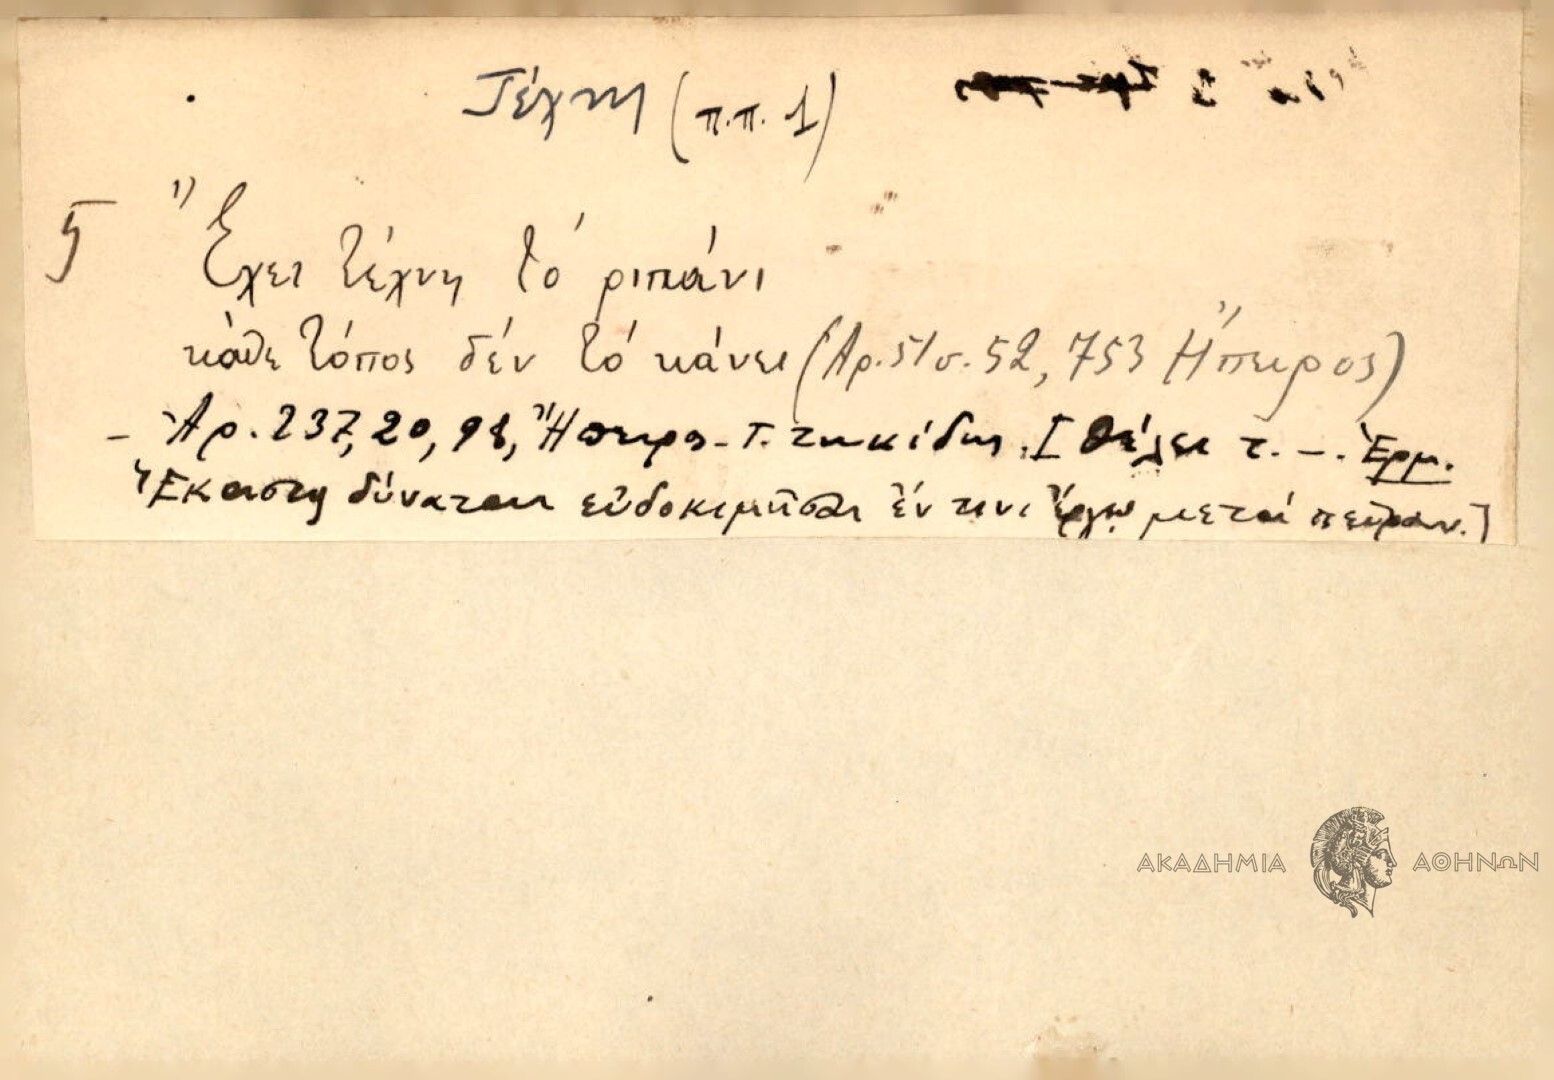 Τέχνη (π.π. 1)
5 Ἔχει τέχνη τό ριπάνι
κάθε τόπος δέν τό κάνει (Αρ. 51 σ. 52, 753 Ἤπειρος)
- Ἀρ. 237, 20, 98, Ἤπειρος - Γ. [Θέλει τ. -. Ἑρμ.
Ἕκαστος δύναται εὐδοκιμῆσαι ἔν τινι ἔργῳ μετά πεῖραν.]
ΑΚΑΔΗΜΙΑ ΑΘΗΝΩΝ